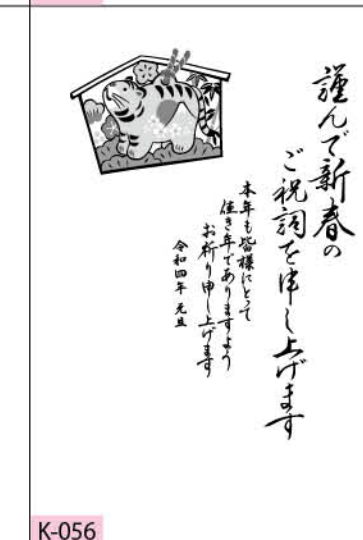 謹んで新春の
ご祝詞を申し上げます
本年も皆様にとって
佳き年でありますよう
お祈り申し上げます
令和四年 元旦
K-056